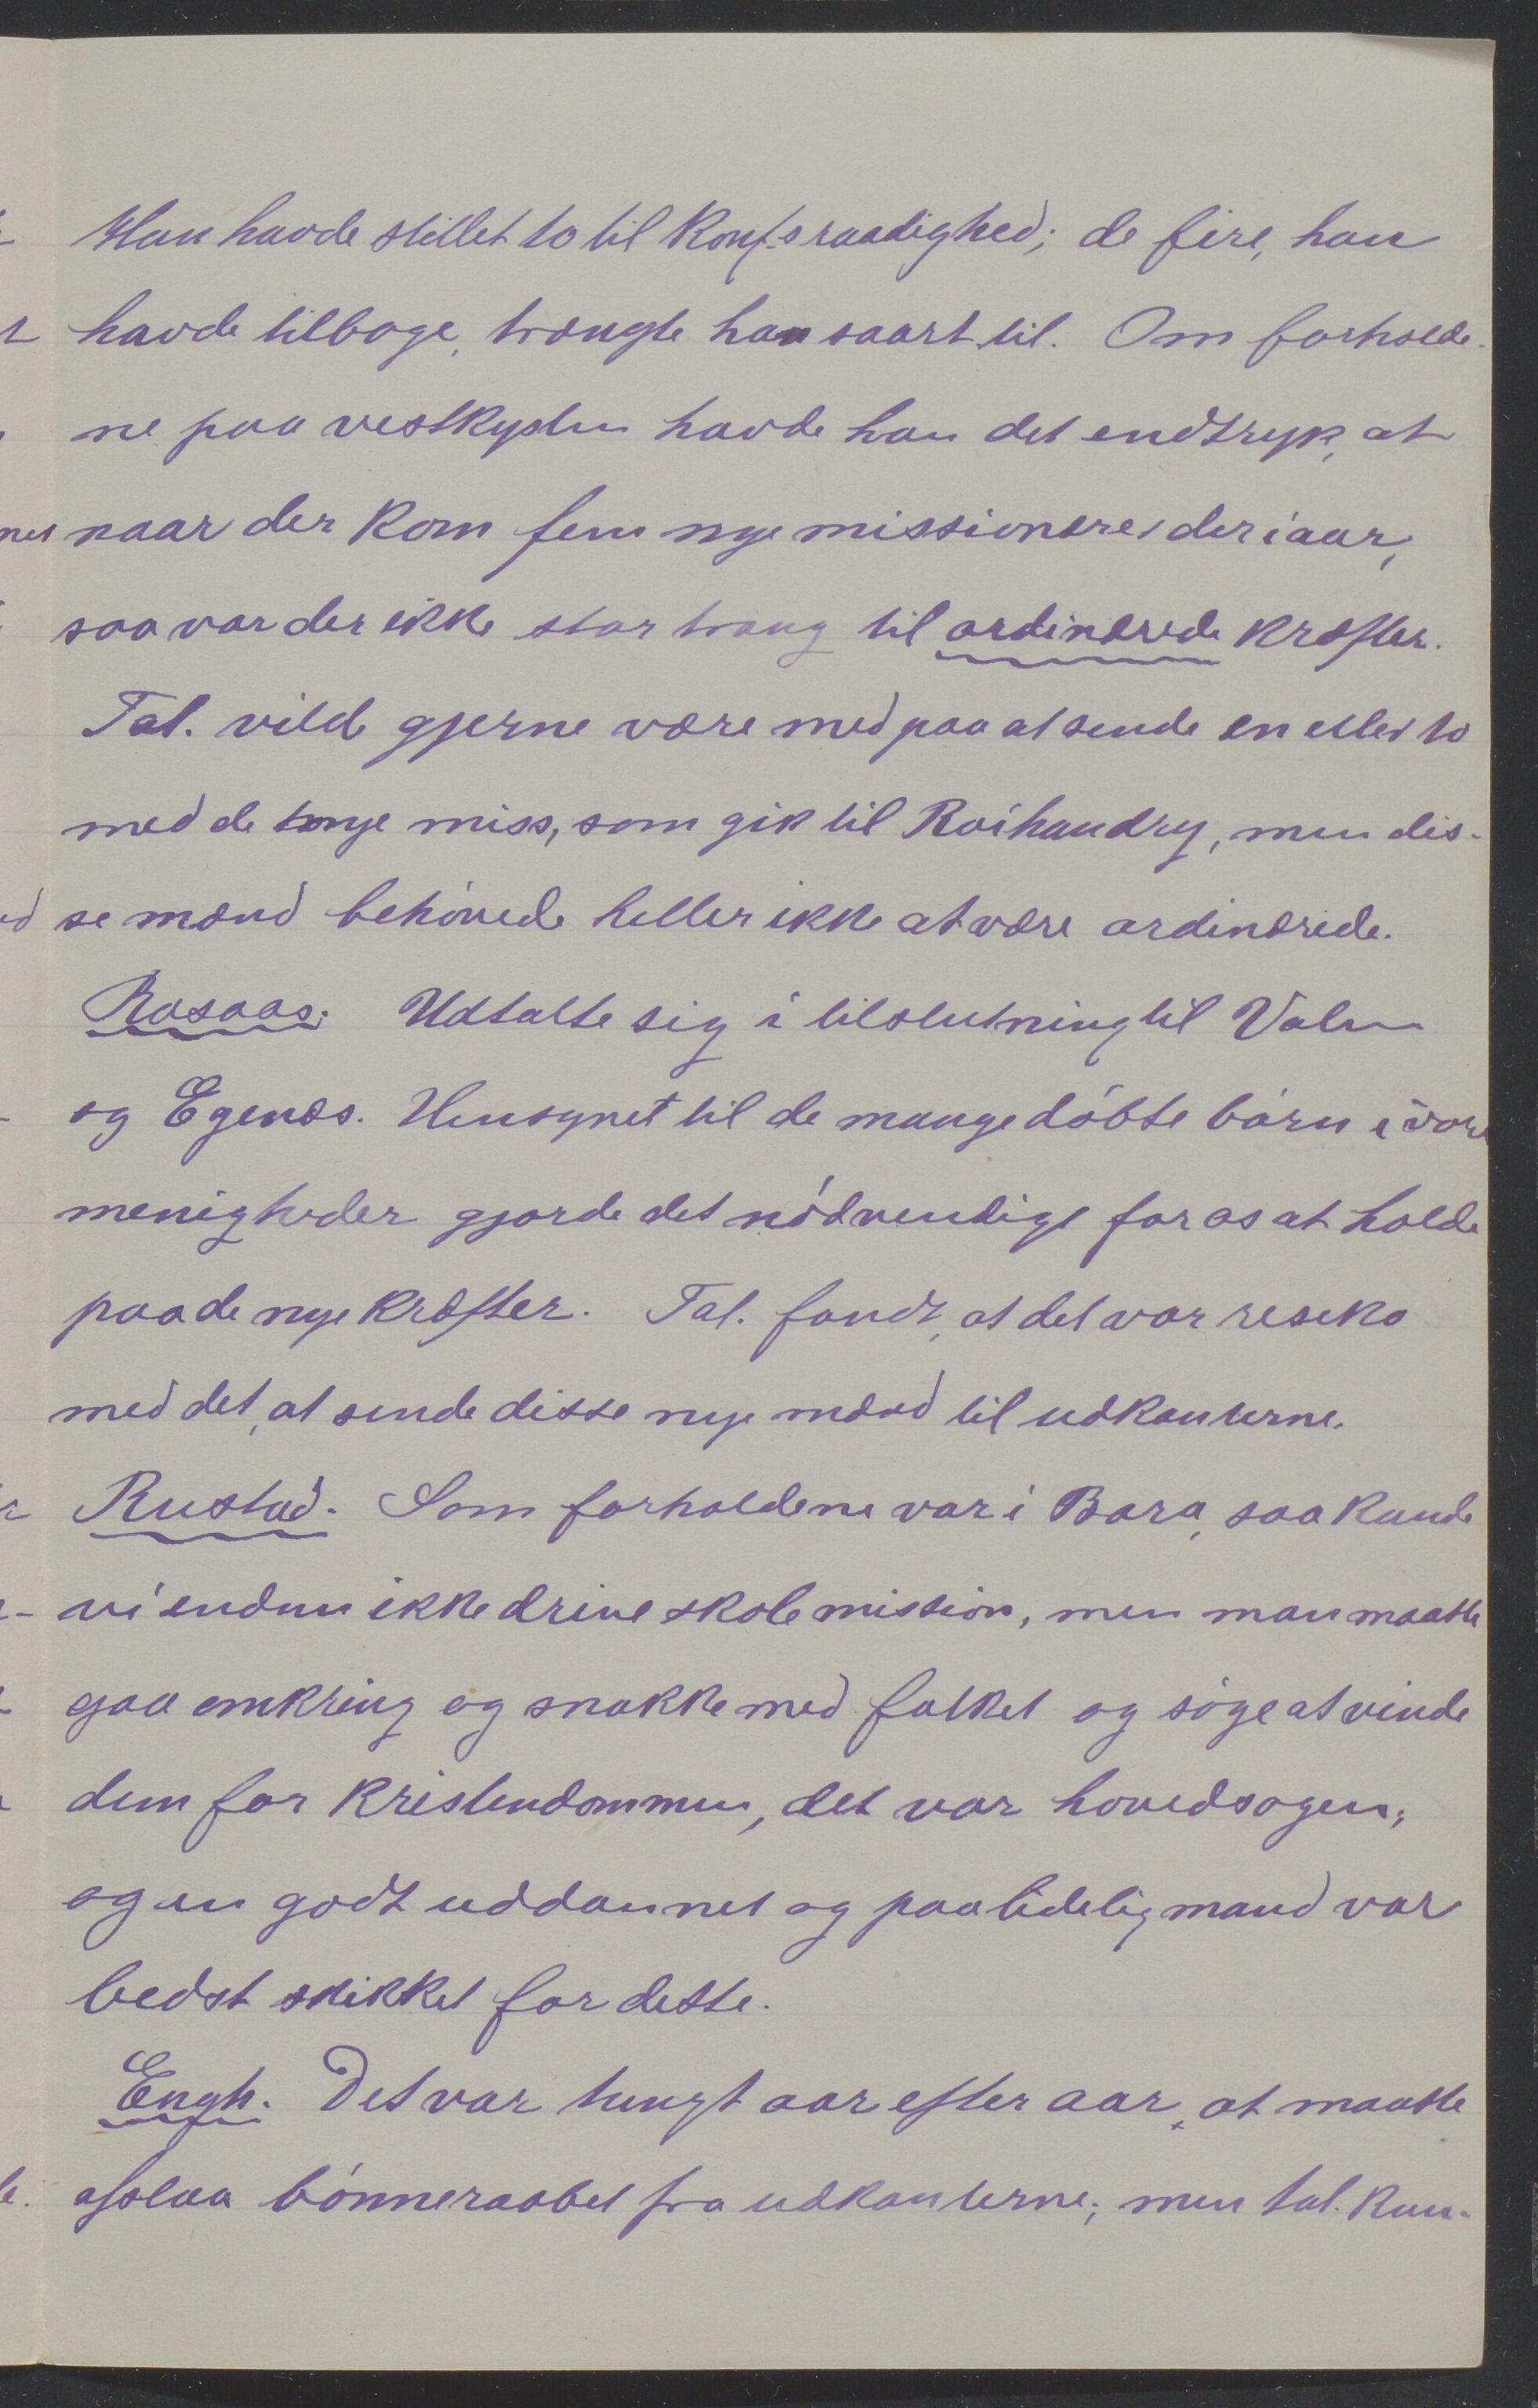 Han havde stillet to til Konf.s raadighed; de fire, han
havde tilbage, trængte han saart til. Om forholde-
ne paa vestkysten havde han det endtryk, at
naar der kom fem nye missionære der iaar,
saa var der ikke stor trang til ordinærede kræfter.
Tal. vilde gjerne være med paa at sende en eller to
med de to nye miss, som gik til Raihandry, men dis-
se mænd behövede heller ikke at være ordinærede.
Rosaas: Udtalte sig i tilslutning til Valen
og Egenæs. Hensynet til de mange döbte börn i vore
menigheder gjorde det nödvendigt for os at holde
paa de nye kræfter. Tal. fandt, at det var reseko
med det, at sende disse nye mænd til udkanterne.
Rustad. Som forholdene var i Bara, saa kunde
vi endnu ikke drive skolemission, men man maatte
gaa omkring og snakke med folket og söge at vinde
dem for kristendommen, det var hovedsagen;
og en godt uddannet og paalidelig mand var
bedst skikket for dette.
Engh. Det var tungt aar efter aar, at maatte
afslaa bönneraabet fra udkanterne; men tal. kun-